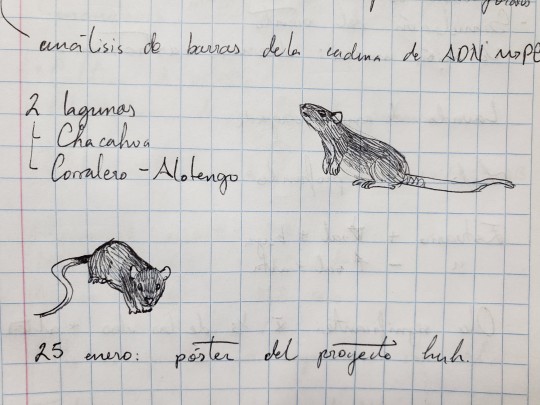 análisis de barras de la cadena de ADN
2 lagunas
Chacahua
Corralero - Alotengo
25 enero: póster del proyecto huh.